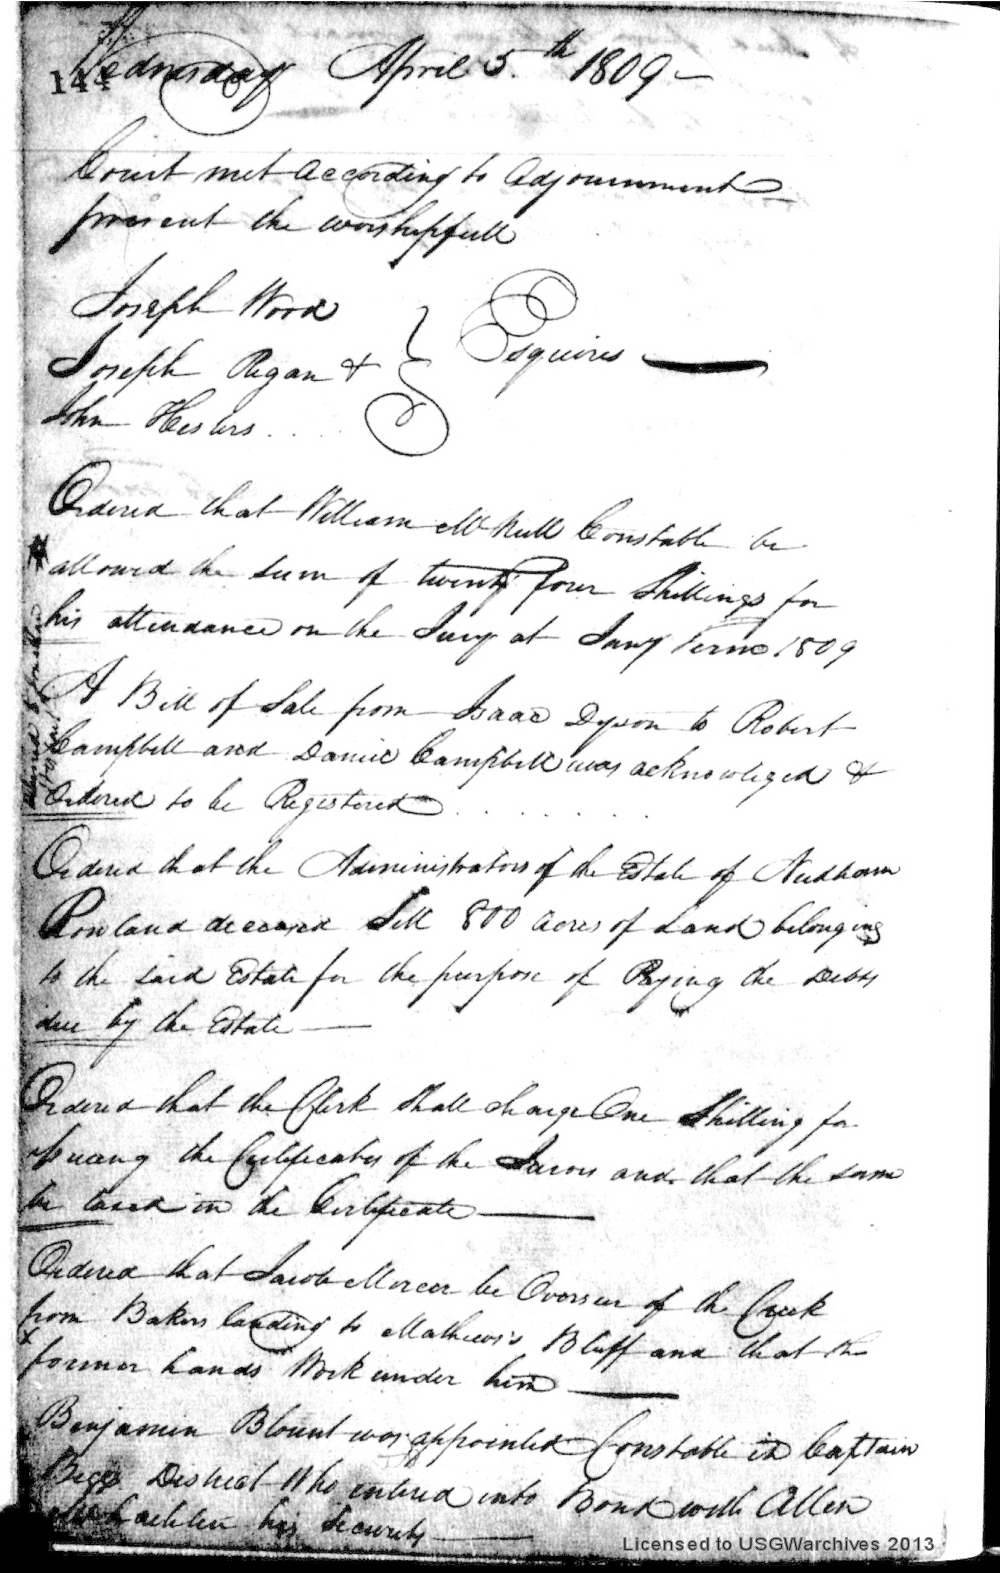 144
Wednesday April 5.th 1809 —
Court met according to adjournment
present the worshipfull
Joseph Wood
Joseph Regan & } Esquires —
John Hesters . . . .
Ordered that William McNeill Constable be
allowed the sum of twenty four Shillings for
his attendance on the Jury at Jany Term 1809
A Bill of Sale from Isaac Dyson to Robert
Campbell and Daniel Campbell was acknowleged &
Ordered to be Registered . . . . . . .
Ordered that the Administrators of the Estate of Needham
Rowland deceased Sell 800 acres of Land belonging
to the said Estate for the purpose of Paying the Debts
due by the Estate —
Ordered that the Clerk shall charge One Shilling for
issueing the Certificates of the Jurors and that the same
be taxed in the Certificate —
Ordered that Jacob Mercer be Overseer of the Creek
from Bakers landing to Mathews's Bluff and that the
x
former hands Work under him —
Benjamin Blount was appointed Constable in Captain
Biggs District Who entered into Bond with Allen
his Security —
Licensed to USGWarchives 2013